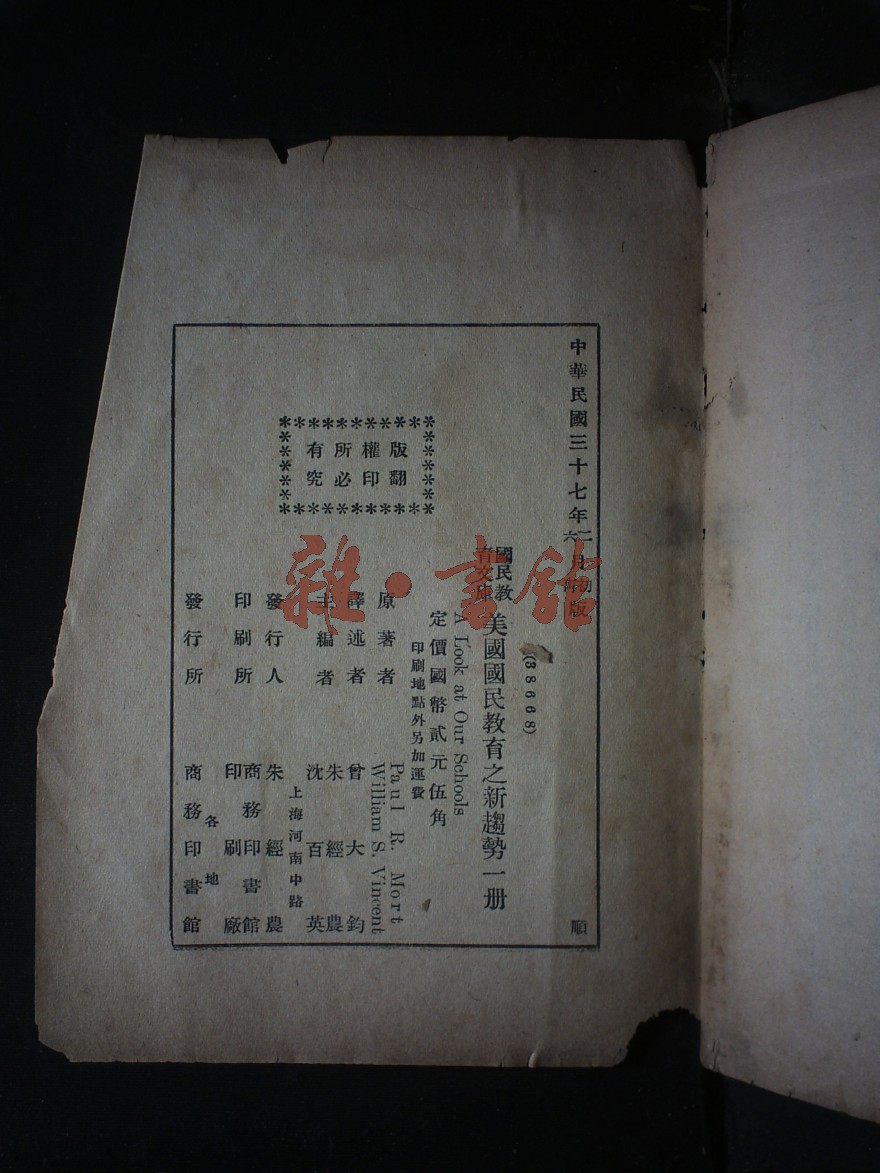 中華民國三十七年二月初版
六月再版
(38668)
國民教育文庫
美國國民教育之新趨勢一册
A Look at Our Schools
定價國幣貳元伍角
印刷地點外另加運費
原著者 Paul R. Mort
William S. Vincent
譯述者 曾大鈞
主編者 朱經農
沈百英
上海河南中路
發行人 朱經農
印刷所 商務印書館
印刷廠
各地
發行所 商務印書館
版權所有
翻印必究
順
雜·書館